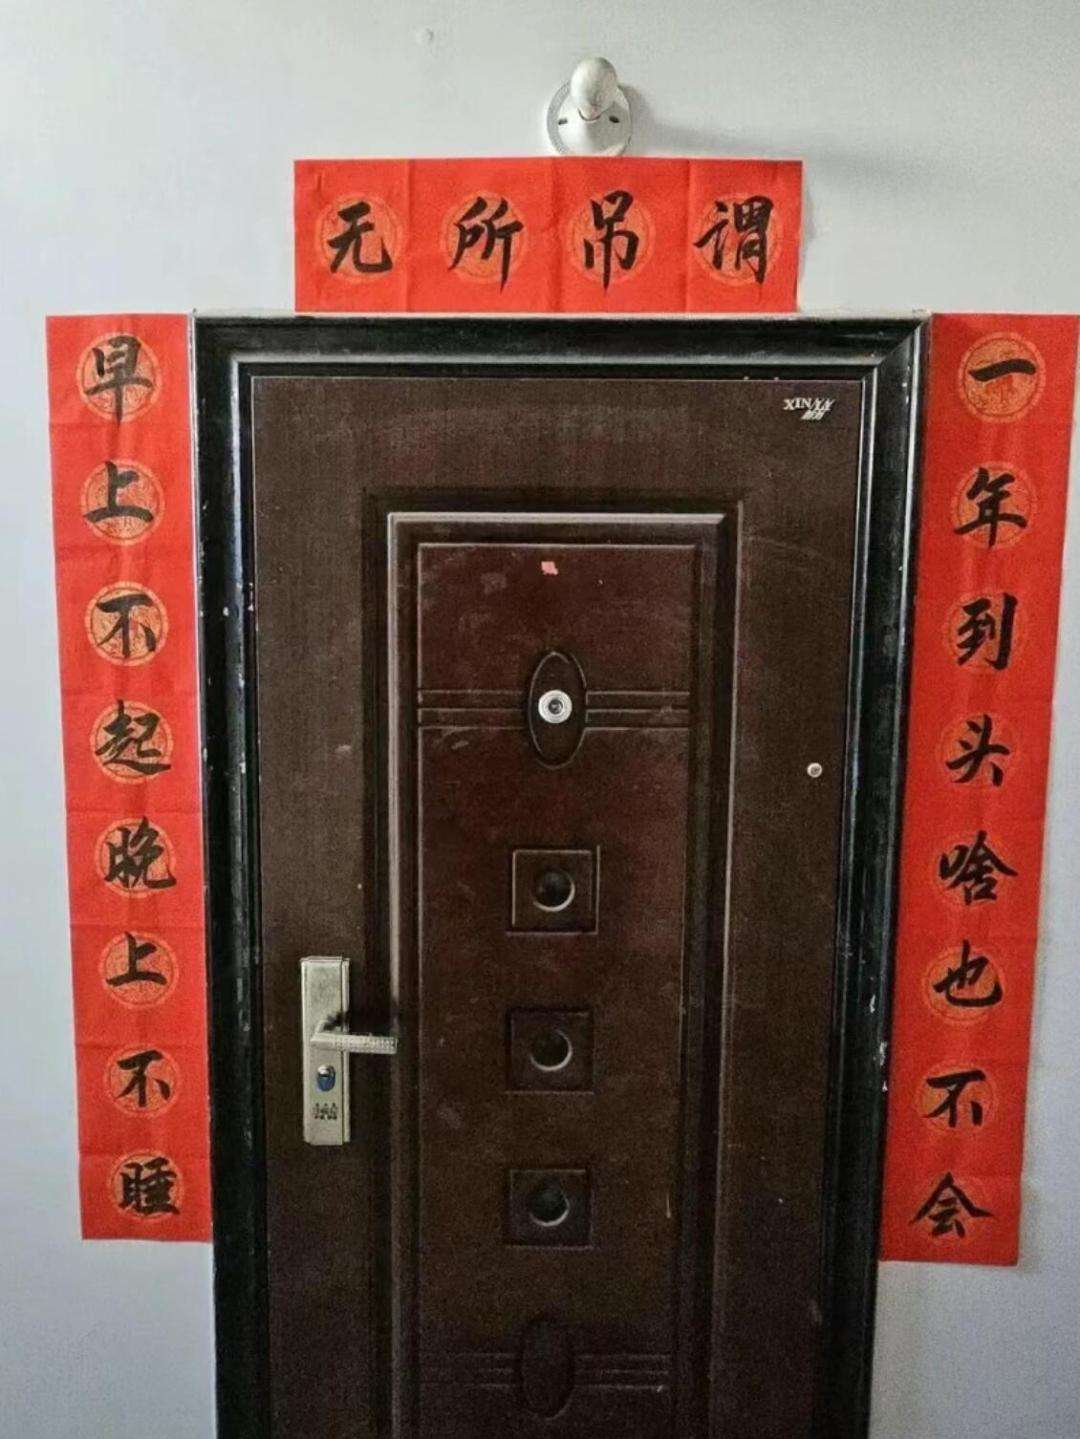 无所吊谓
一年到头啥也不会
早上不起晚上不睡